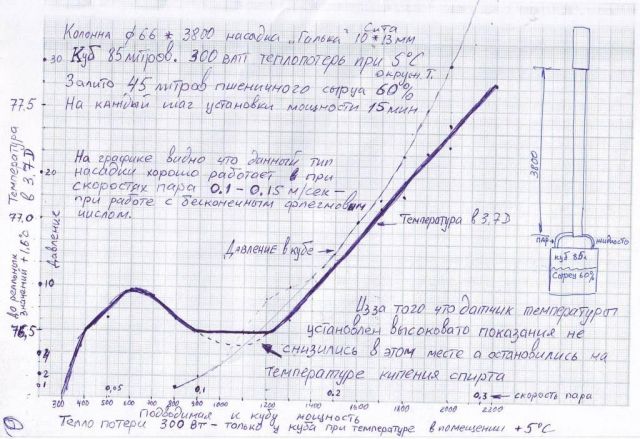 Колонна ф66 * 3800 насадка „Галька" Сита 10*13мм
Куб 85 литров. 300 ватт теплопотерь при 5°С
окруж.т.
Залито 45 литров пшеничного сырца 60%
На каждый шаг установки мощности 15 мин
На графике видно что данный тип
насадки хорошо работает в при
скоростях пара 0.1-0.15 м/сек -
при работе с бесконечным флегмовым
числом.
Давление в кубе
Температура в 3,7D
Из за того что датчик температуры
установлен высоковато показания не
снизились в этом месте а остановились на
температуре кипения спирта
Температура
в 3,7D
До реальных
значений +1,6°С
Давление
77.5
77.0
76,5
30
20
10
4
2
1
0,05
0,1
0,2
0,3
скорость пара
300 400 600 800 1000 1200 1400 1600 1800 2000 2200
Подводимая к кубу мощность
Тепло потери 300 Вт - только у куба при температуре в помещении +5°С
3800
пар
жидкость
куб 85л
Сырец 60%